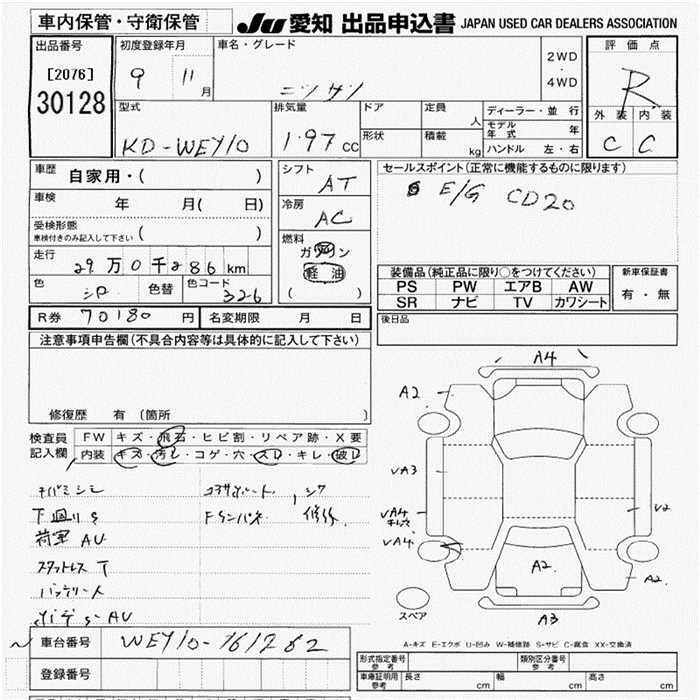 車内保管・守衛保管
JU 愛知 出品申込書 JAPAN USED CAR DEALERS ASSOCIATION
出品番号 初度登録年月 車名・グレード 2WD ・ 4WD 評価点
[2076]
30128
9 11 月 ニッサン R
型式 排気量 ドア 定員 人 ディーラー・並行 外装 内装
KD-WEY10 1.97 cc 形状 積載 kg モデル年式 年 C C
ハンドル 左・右
車歴 自家用・( ) シフト AT セールスポイント(正常に機能するものに限ります)
E/G CD20
車検 年 月(日) 冷房 AC
受検形態
車検付きのみ記入して下さい ( )
燃料 ガソリン
軽油
( )
走行 29万0千286km
装備品(純正品に限り○をつけてください) 新車保証書
色 シロ 色替 色コード 326
PS PW エアB AW 有・無
SR ナビ TV カワシート
R券 70180円 名変期限 月 日 後日品
注意事項申告欄(不具合内容等は具体的に記入して下さい)
修復歴 有 (箇所
検査員記入欄 FW キズ・飛石・ヒビ割・リペア跡・X要
内装 キズ・汚レ・コゲ・穴・スレ・キレ・破レ
下回りS
荷室 AU
スタットレス T
A4
A2
VA3
VA4
VA4
V2
A2
A2
A3
スペア
A-キズ E-エクボ U-凹み W-補修跡 S-サビ C-腐食 XX-交換済
車台番号 WEY10-161282
登録番号
形式指定番号 参考 類別区分番号 参考
車庫証明用 参考 長さ cm 幅 cm 高さ cm